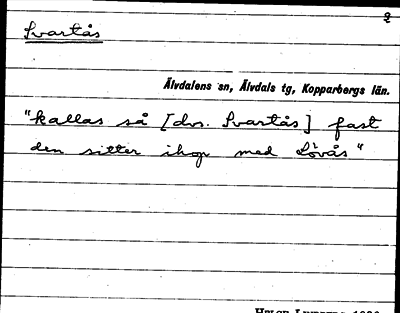 2
Svartås
Älvdalens sn, Älvdals tg, Kopparbergs län.
"kallas så [dvs. Svartås] fast
den sitter ihop med Lövås"